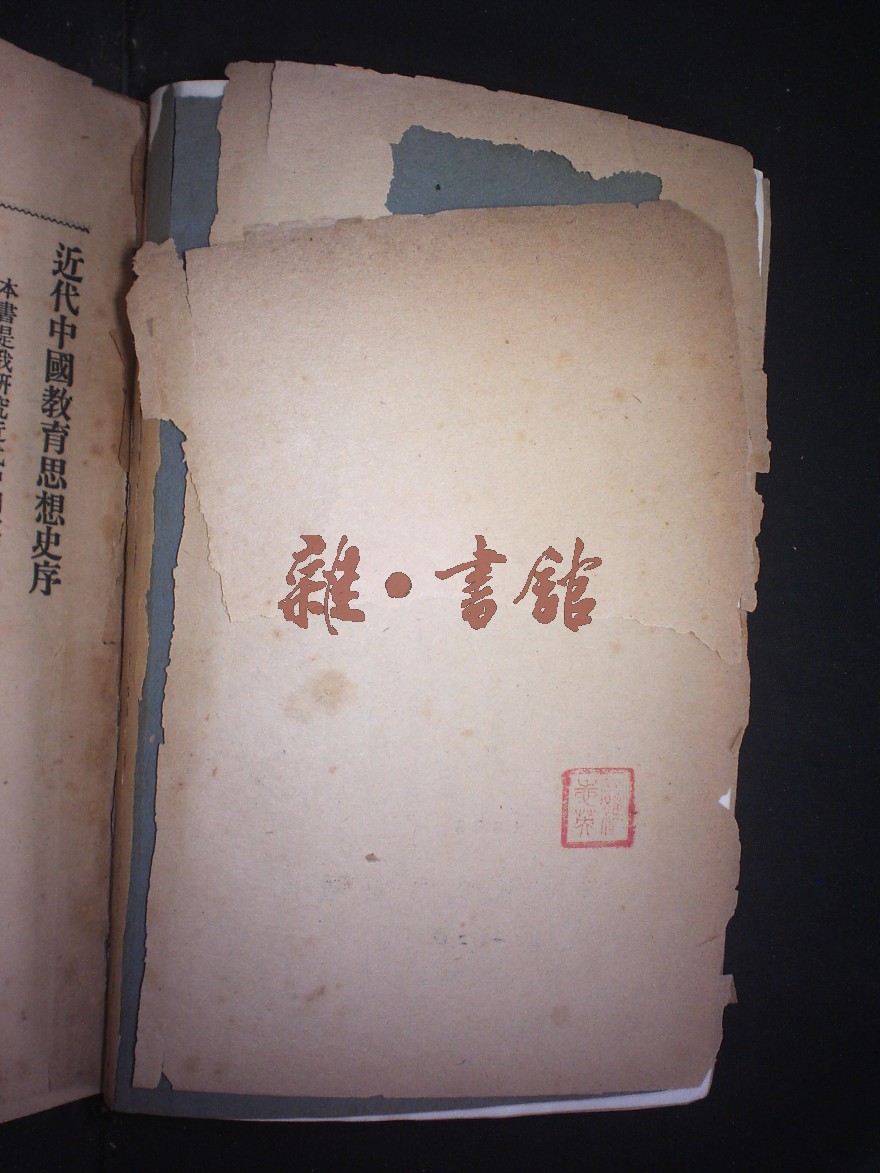 近代中國教育思想史序
本書是我研究近代中國
雜·書館